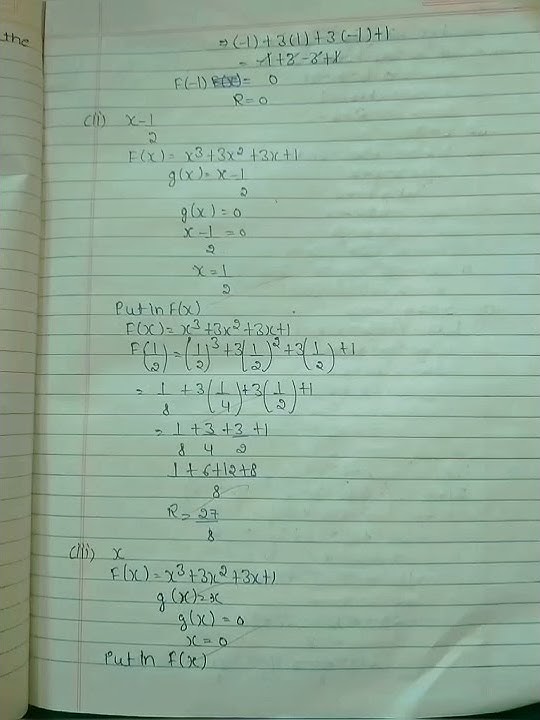 the
⇒ (-1) + 3(1) + 3(-1)+1
= -1+3-3+1
F(-1) = 0
R=0
(ii) x-1/2
F(x) = x³+3x²+3x+1
g(x)= x-1/2
g(x) = 0
x-1/2 = 0
x = 1/2
Put in F(x)
F(x) = x³+3x²+3x+1
F(1/2) = (1/2)³+3(1/2)²+3(1/2)+1
= 1/8 + 3(1/4)+3(1/2)+1
= 1/8 + 3/4 + 3/2 +1
1+6+12+8/8
R = 27/8
(iii) x
F(x) = x³+3x²+3x+1
g(x)=x
g(x) = 0
x = 0
Put in F(x)